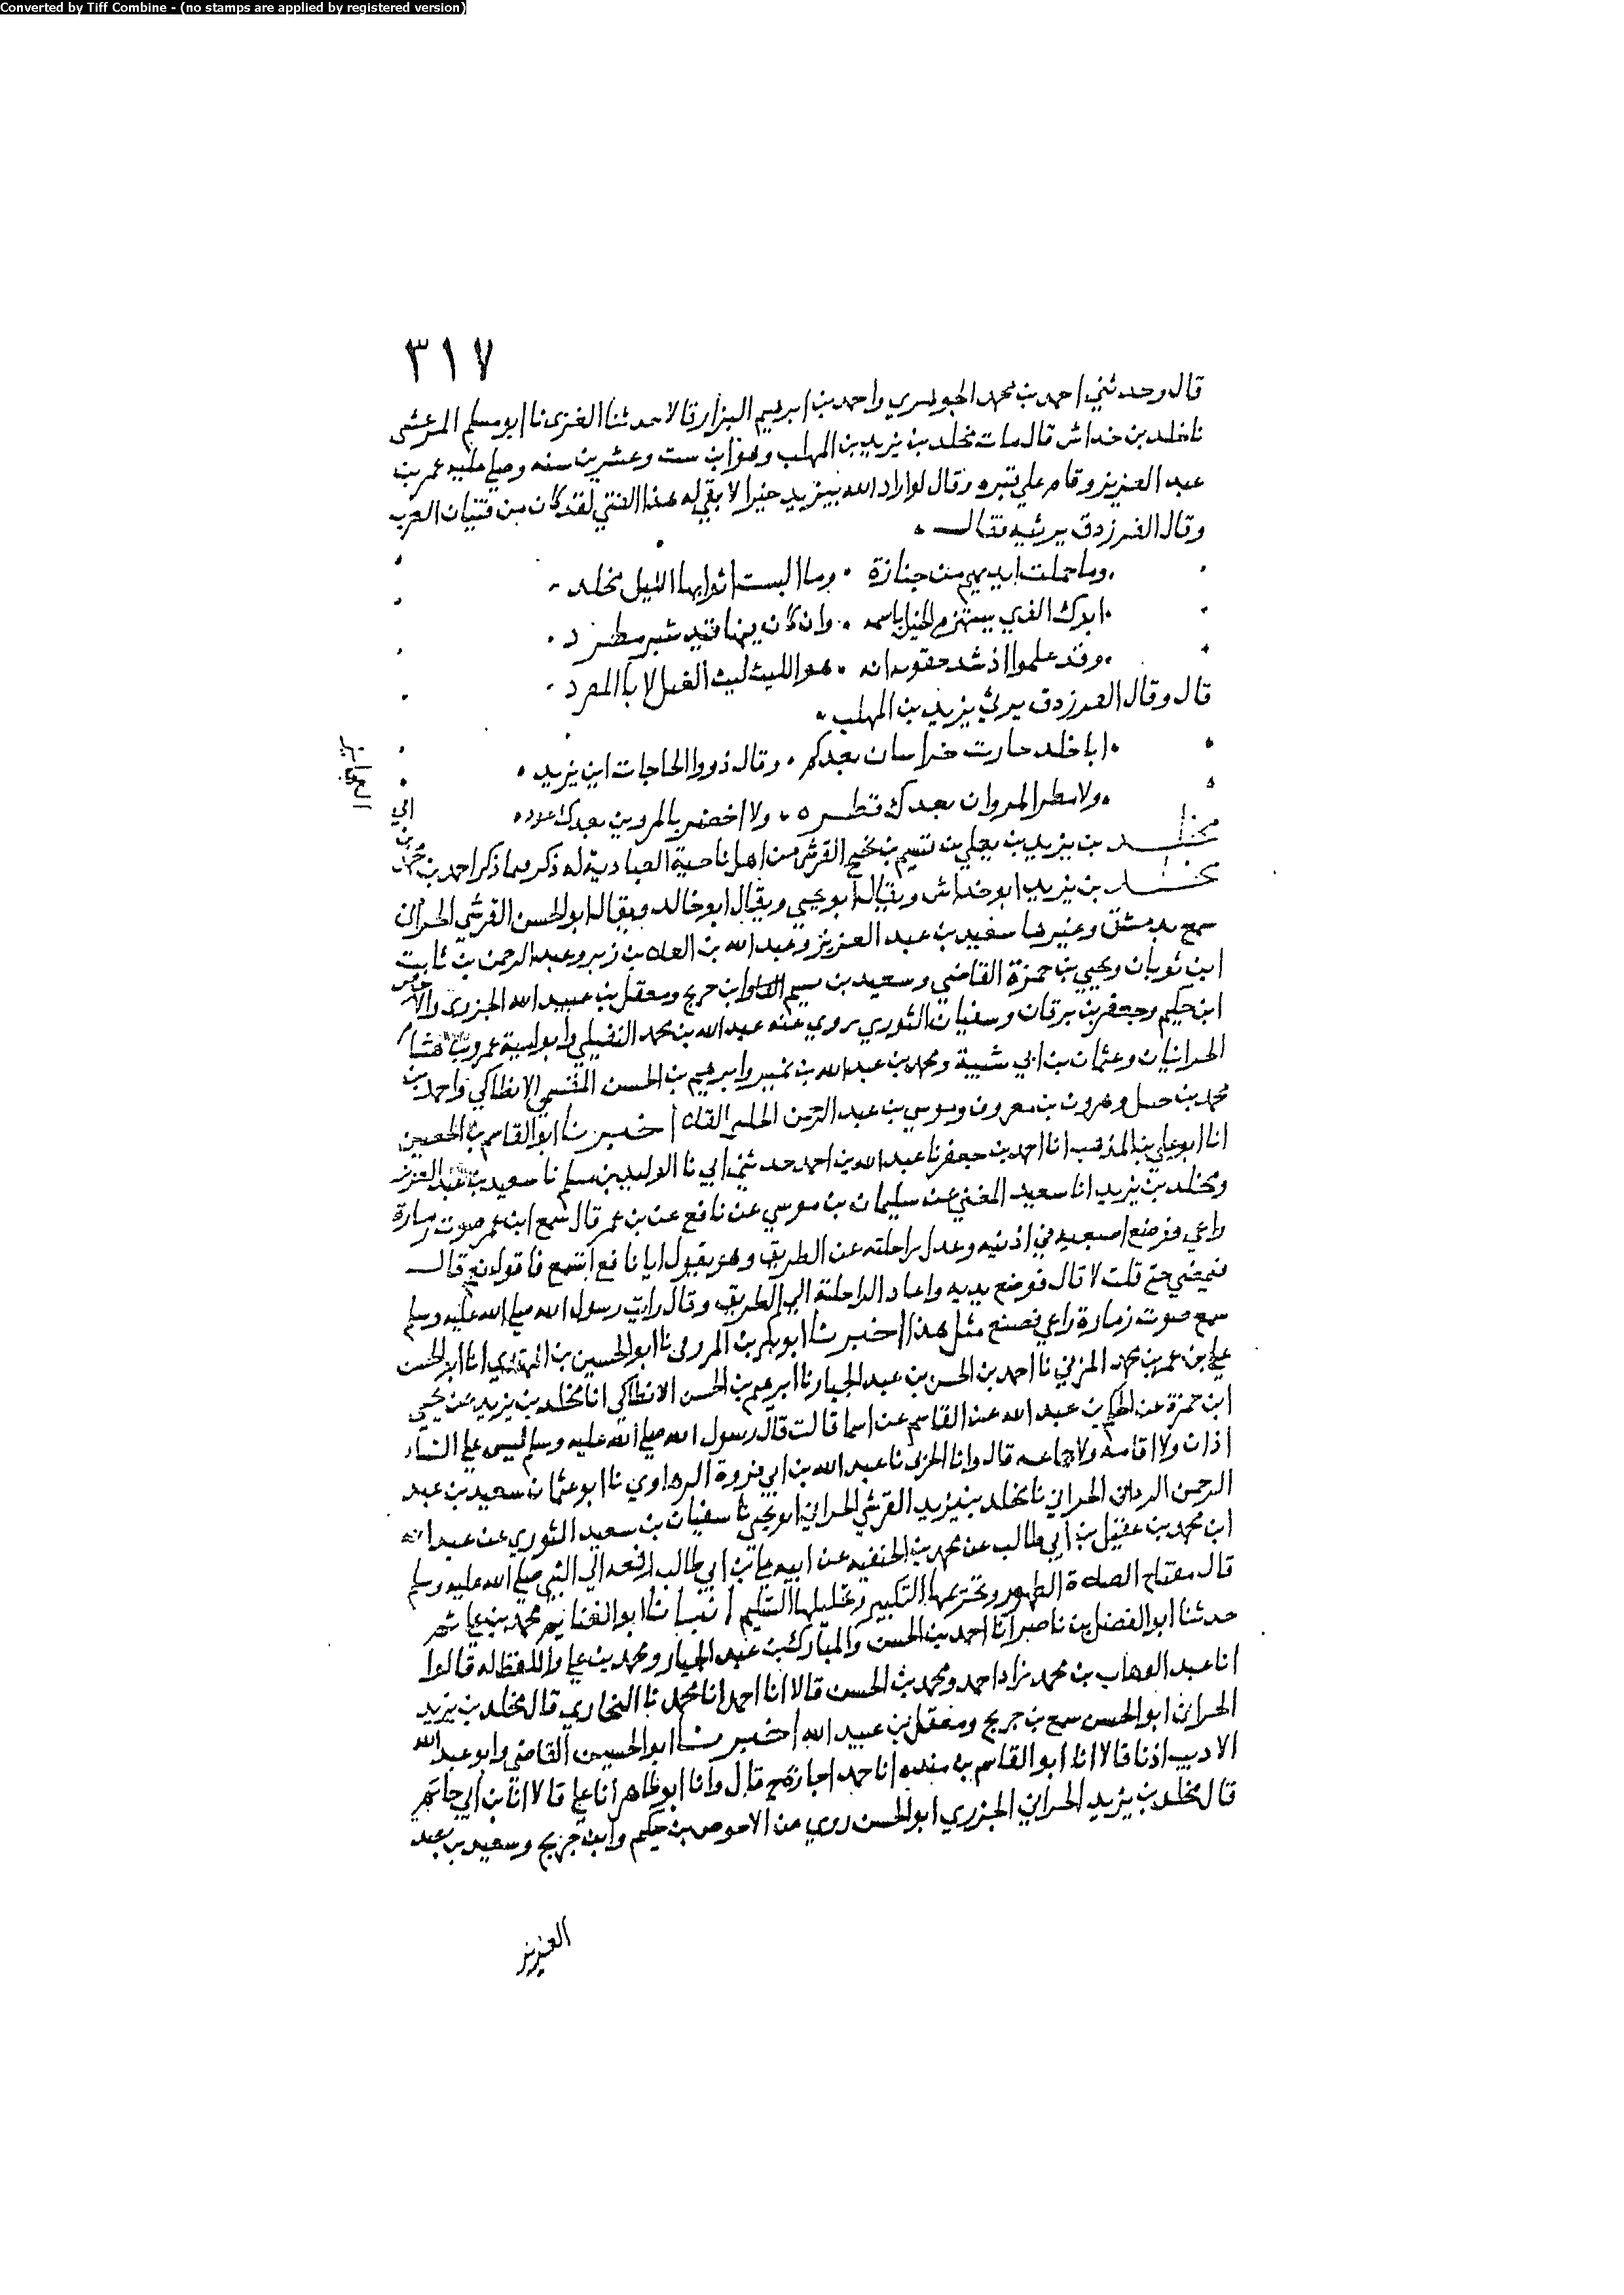 Converted by Tiff Combine - (no stamps are applied by registered version)
٣١٧
قال وحدثني احمد بن محمد الجوهري واحمد بن ابرهيم البزار قالا حدثنا العنزي نا ابو مسلم المرعشي
نا خلد بن خداش قال مات مخلد بن يزيد بن المهلب وهو ابن ست وعشرين سنه وصلي عليه عمر بن
عبد العزيز وقام علي قبره وقال لو اراد الله بيزيد خيرا لا بقي له هذا الفتي لقد كان من فتيان العرب
وقال الفرزدق يرثيه فقال
وما حملت ايديهم من جنازة وما البست اثوابها مثل مخلد
ابوك الذي يستهزم الخيل باسمه وان كان فيها قيد شهر مطرد
وقد علموا اذ شد حقويه انه هو الليث ليث الغيل لا بالمعرد
قال وقال الفرزدق يرثي يزيد بن المهلب
ابا خلد حارت خراسان بعدكم وقال ذووا الحاجات اين يزيد
ولا مطر المروان بعدك قطره ولا اخضر بالمروين بعدك عود
ابي العجايز
مخلد بن يزيد بن يعلي بن تميم بن نجيح القرشي من اهل ناحية العبادية له ذكر فيما ذكر احمد بن حميد بن
مخلد بن يزيد ابو خداش ويقال ابو يحيي ويقال ابو خالد ويقال ابو الحسن القرشي الحراني
سمع بدمشق وغيرها سعيد بن عبد العزيز وعبد الله بن العلاء بن زبر وعبد الرحمن بن ثابت
ابن ثوبان ويحيي بن حمزة القاضي وسعيد بن وابن جريج ومعقل بن عبيد الله الجزري والاحوص
ابن حكيم وجعفر بن برقان وسفيان الثوري روي عنه عبد الله بن محمد النفيلي وابو امية عمرو بن هشام
الحرانيان وعثمان بن ابي شيبة ومحمد بن عبد الله بن نمير وابرهيم بن الحسن المقسمي الانطاكي واحمد بن
محمد بن حنبل وهرون بن معروف وموسي بن عبد الرحمن الحلبي القلاء اخبرنا ابو القاسم بن الحصين
انا ابو علي بن المذهب انا احمد بن جعفر نا عبد الله بن احمد حدثني ابي نا الوليد بن مسلم نا سعيد بن عبد العزيز
ومخلد بن يزيد انا سعيد المعني عن سليمان بن موسي عن نافع عن بن عمر قال سمع ابن عمر صوت زمارة
راعي فوضع اصبعيه في اذنيه وعدل راحلته عن الطريق وهو يقول ايا نافع اتسمع فاقول نعم قال
فيمضي حتي قلت لا قال فوضع يديه واعاد الراحلة الي الطريق وقال رايت رسول الله صلي الله عليه وسلم
سمع صوت زمارة راعي فصنع مثل هذا اخبرنا ابو بكر بن المزرفي نا ابو الحسين بن المهتدي انا ابو الحسن
علي بن عمر بن محمد الحربي نا احمد بن الحسن بن عبد الجبار نا ابرهيم بن الحسن الانطاكي انا مخلد بن يزيد عن يحيي
ابن حمزة عن الحكم بن عبد الله عن القاسم عن اسما قالت قال رسول الله صلي الله عليه وسلم ليس علي النساء
اذان ولا اقامه ولا جماعه قال وانا الحربي نا عبد الله بن ابي فروة الرهاوي نا ابو عثمان سعيد بن عبد
الرحمن الحراني نا مخلد بن يزيد القرشي الحراني ابو يحيي نا سفيان بن سعيد الثوري عن عبد الله
ابن محمد بن عقيل بن ابي طالب عن محمد بن الحنفيه عن ابيه علي بن ابي طالب رفعه الي النبي صلي الله عليه وسلم
قال مفتاح الصلاة الطهور وتحريمها التكبير وتحليلها التسليم انبانا ابو الغنايم محمد بن علي ثم
حدثنا ابو الفضل بن ناصر انا احمد بن الحسن والمبارك بن عبد الجبار ومحمد بن علي واللفظ له قالوا
انا عبد الوهاب بن محمد زاد احمد ومحمد بن الحسن قالا انا احمد انا محمد نا البخاري قال مخلد بن يزيد
الحراني ابو الحسن سمع بن جريج ومعقل بن عبيد الله اخبرنا ابو الحسين القاضي وابو عبد الله
الاديب اذنا قالا انا ابو القاسم بن منده انا حمد اجازة ح قال وانا ابو طاهر انا علي قالا انا بن ابي حاتم
قال مخلد بن يزيد الحراني الجزري ابو الحسن روي عن الاحوص بن حكيم وابن جريج وسعيد بن عبد
العزيز